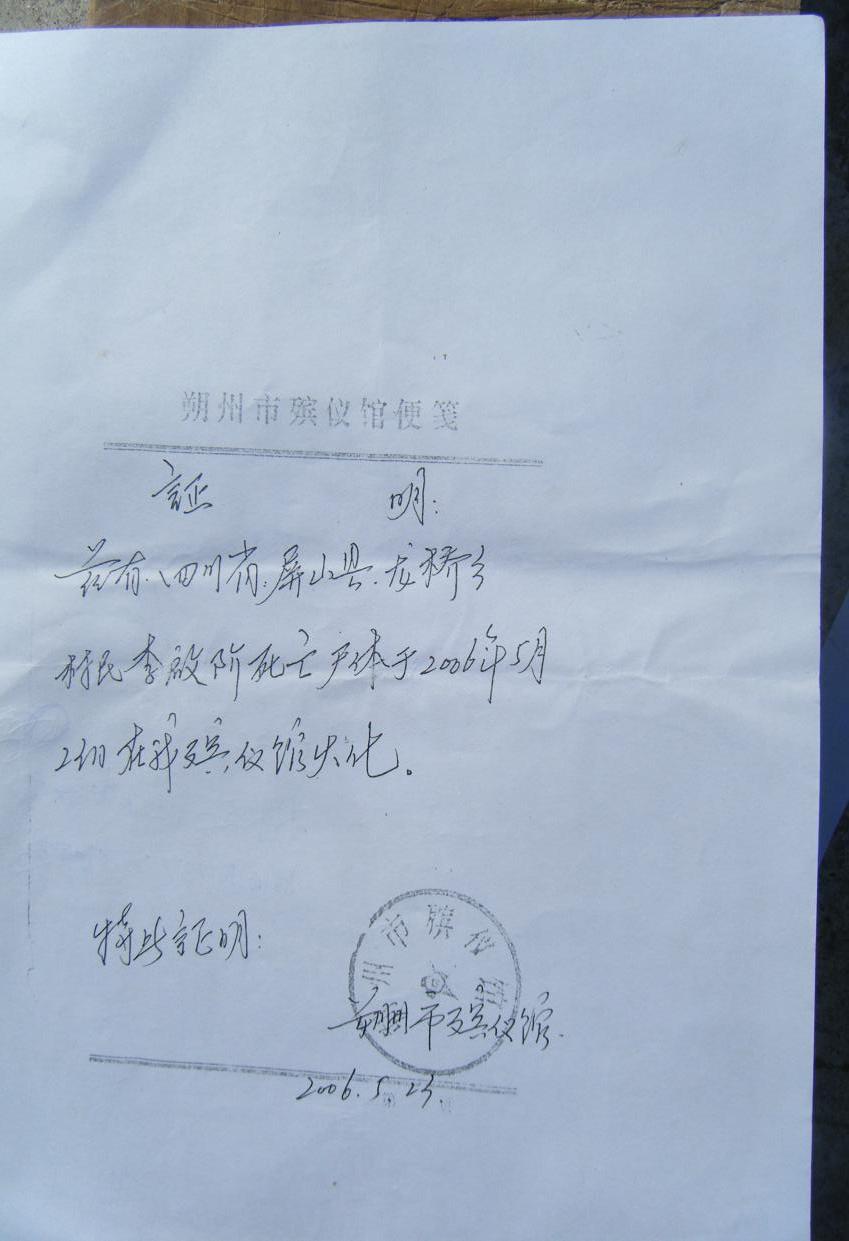 朔州市殡仪馆便笺
证 明:
兹有.四川省.屏山县.龙桥乡
村民李啟阶死亡尸体于2006年5月
在我殡仪馆火化。
特此证明:
州市殡仪馆
朔州市殡仪馆.
2006.5.23.